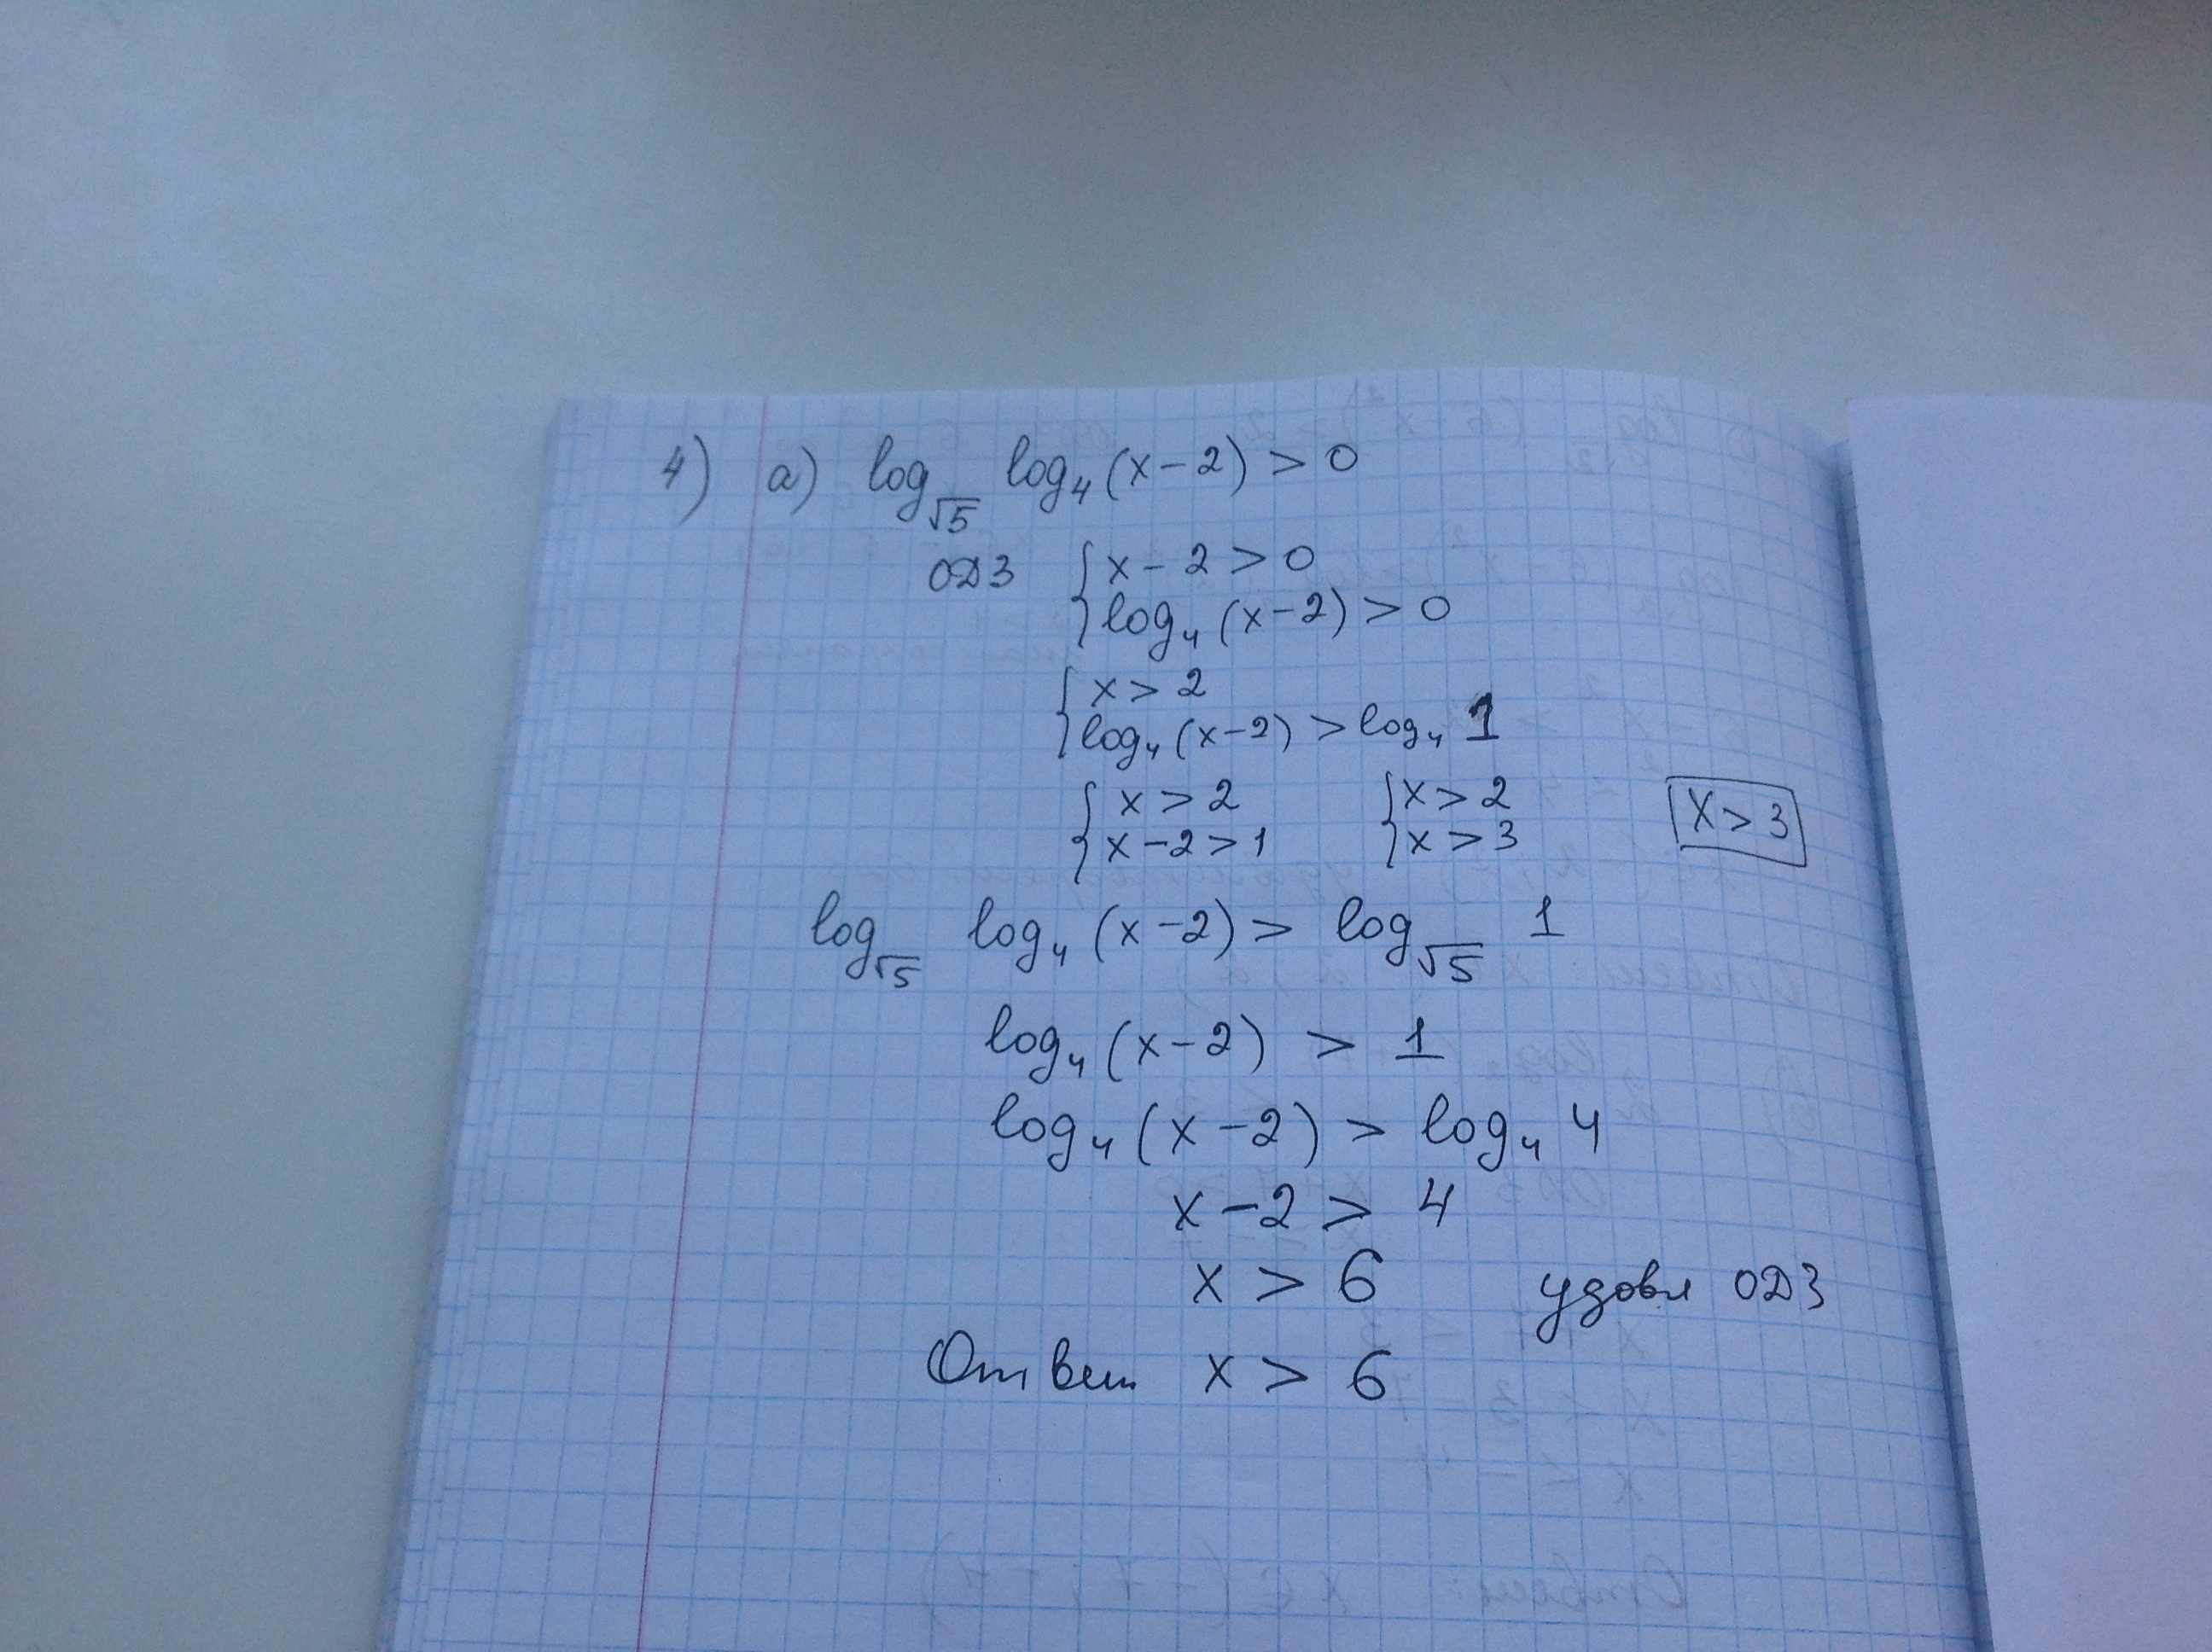 4) а) log√5 log₄(x-2) > 0
ОДЗ { x-2 > 0
log₄(x-2) > 0
{ x > 2
log₄(x-2) > log₄ 1
{ x > 2 { x > 2
x-2 > 1 x > 3 x > 3
log√5 log₄(x-2) > log√5 1
log₄(x-2) > 1
log₄(x-2) > log₄ 4
x-2 > 4
x > 6 удовл ОДЗ
Ответ x > 6